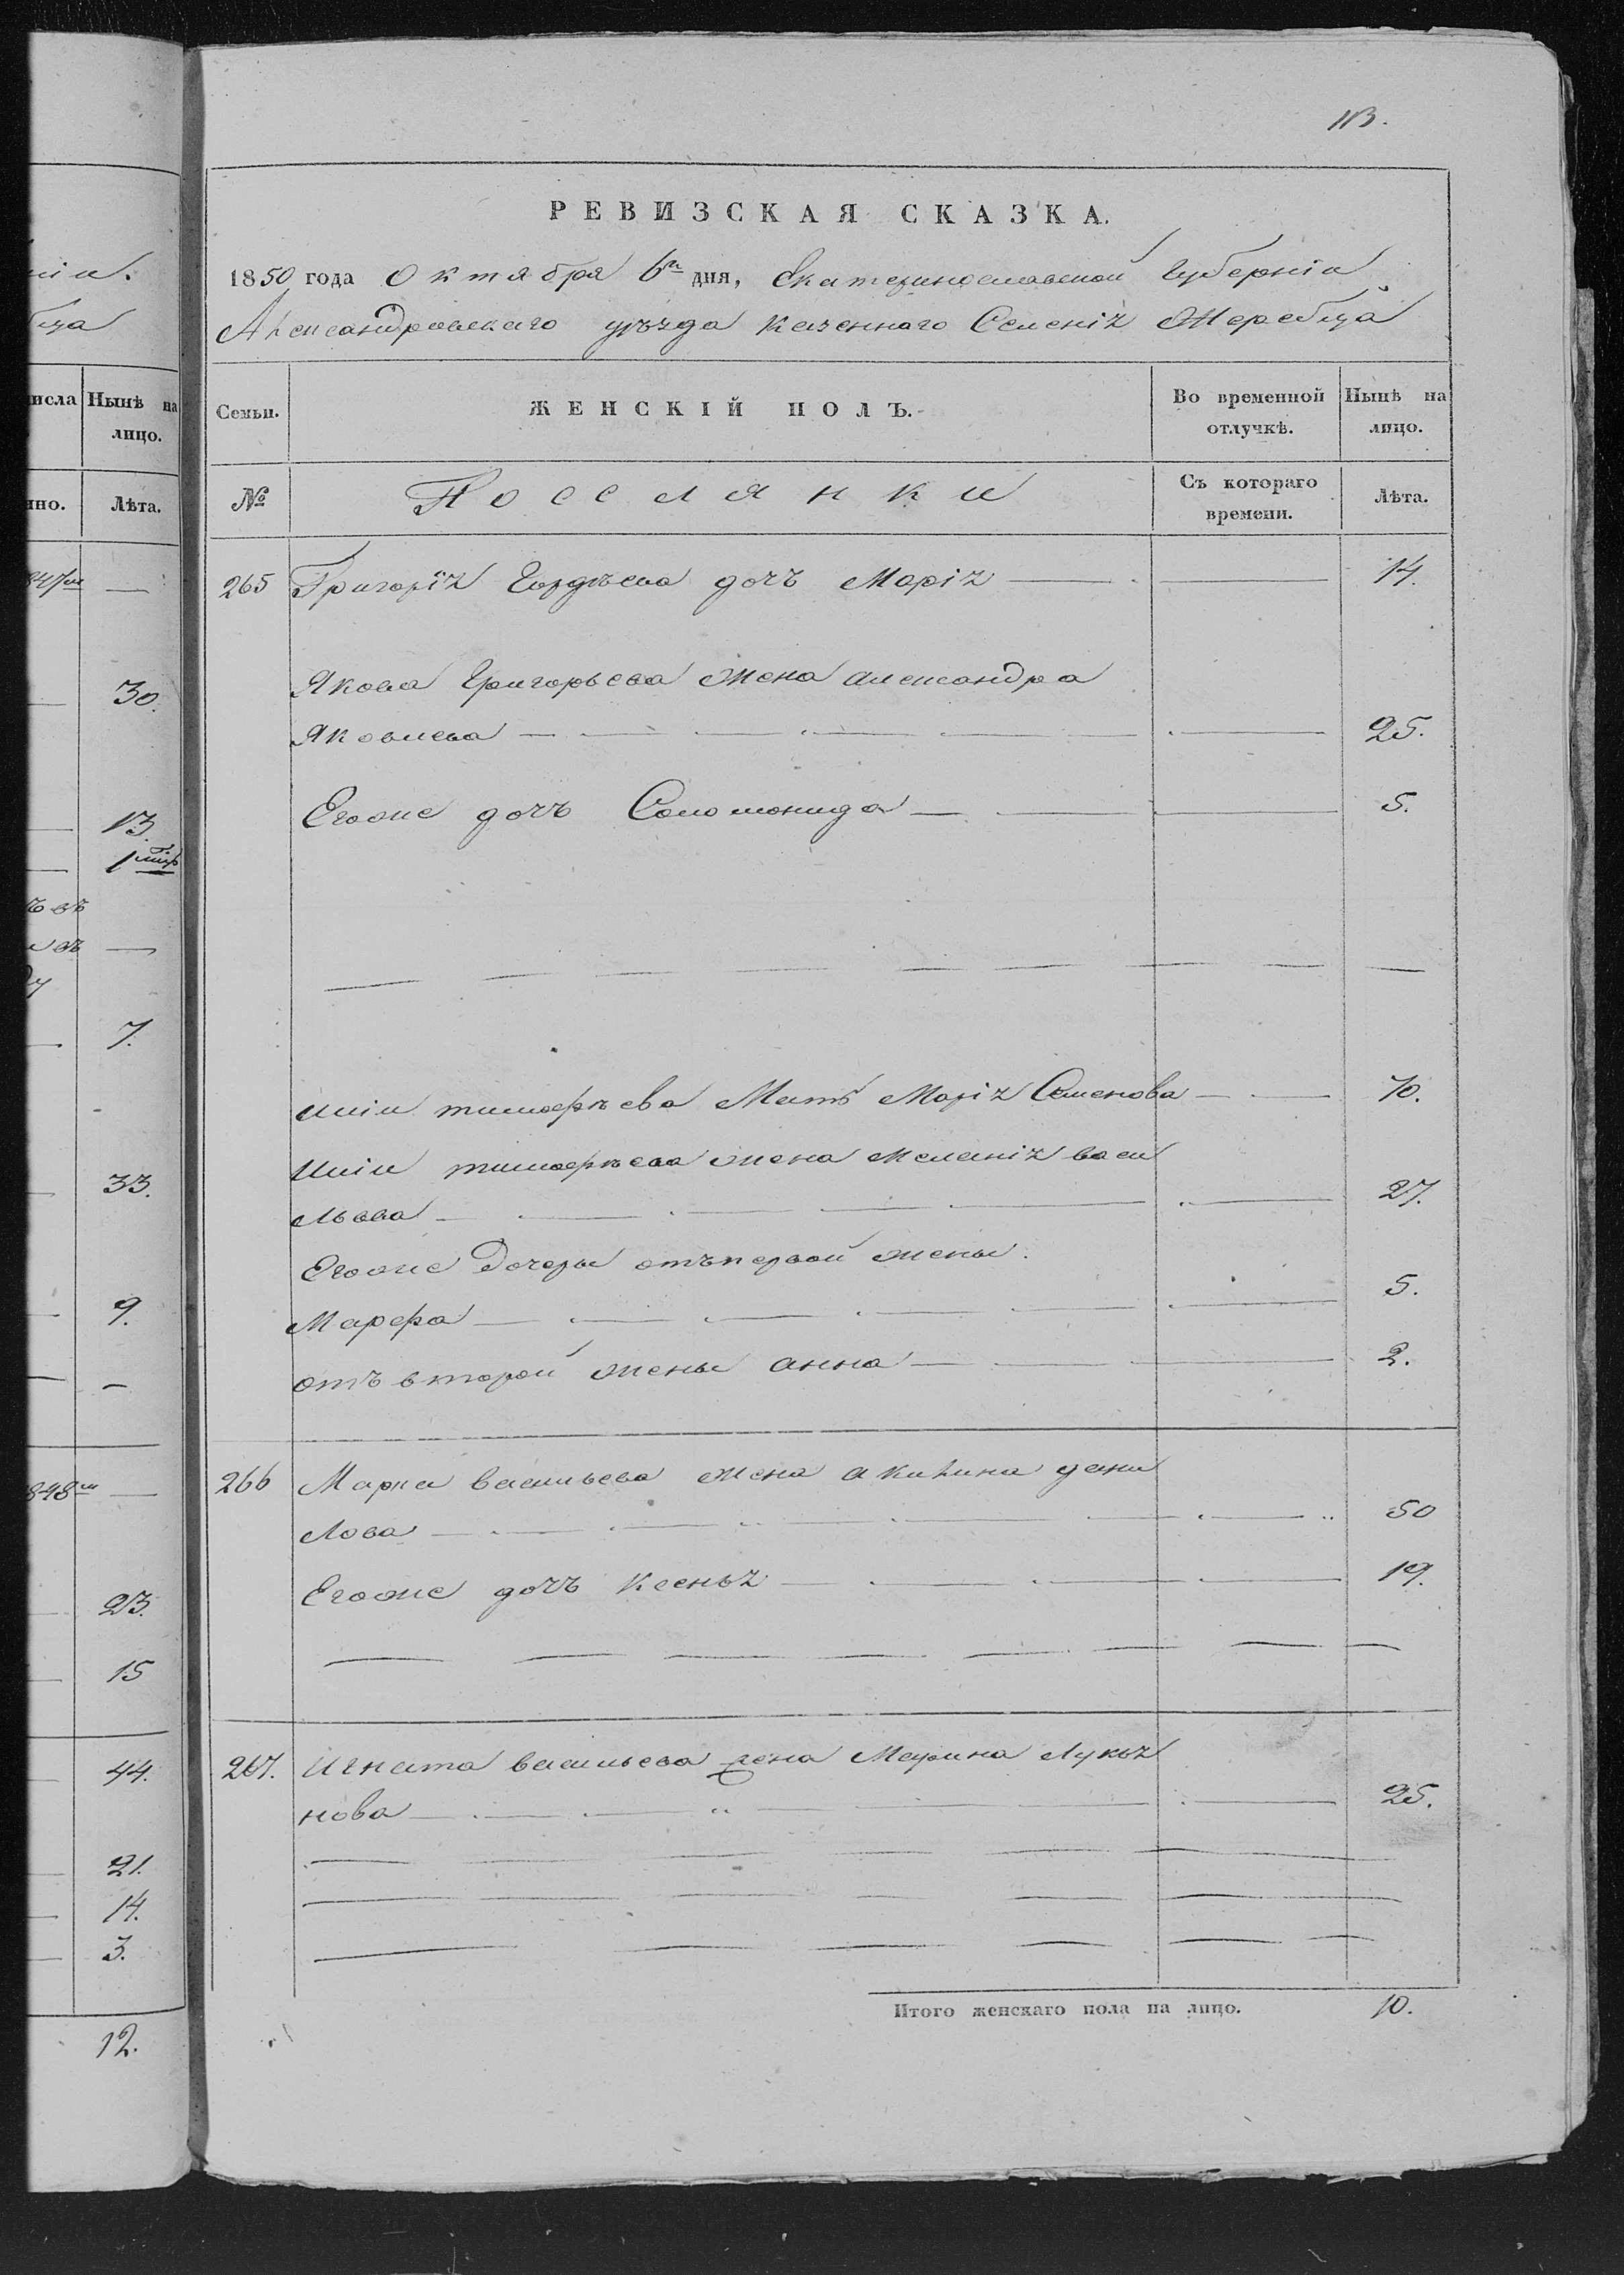 113.
РЕВИЗСКАЯ СКАЗКА.
1850 года октября 6го дня, Екатеринославской Губерніи
Александровскаго уѣзда казеннаго Селенія Жеребца
Семьи.
ЖЕНСКІЙ ПОЛЪ.
Во временной отлучкѣ.
Нынѣ на лицо.
№
Посслянки
Съ котораго времени.
Лѣта.
265 Григорія Гордѣева дочь Марія 14.
Якова Григорьева жена александра
Яковлева 25.
Егоже дочь Соломонида 5.
иліи тимофѣева Мать Марія Семенова 70.
иліи тимофѣева жена меланія васи
льева 27.
Егоже Дочеры отъ первой жены.
Марфа 5.
отъ второй жены анна 2.
266 Марка васильева жена акилина дани
Лова 50
Егоже дочь Ксенья 19.
267. Игната васильева жена Марина Лукья
нова 25.
Итого женскаго пола на лицо. 10.
ніи.
бца
числа
Нынѣ на
лицо.
нно.
Лѣта.
847м
30.
13.
1
ъ въ
въ
ду
7.
33.
9.
848м
23.
15
44.
21.
14.
3.
12.